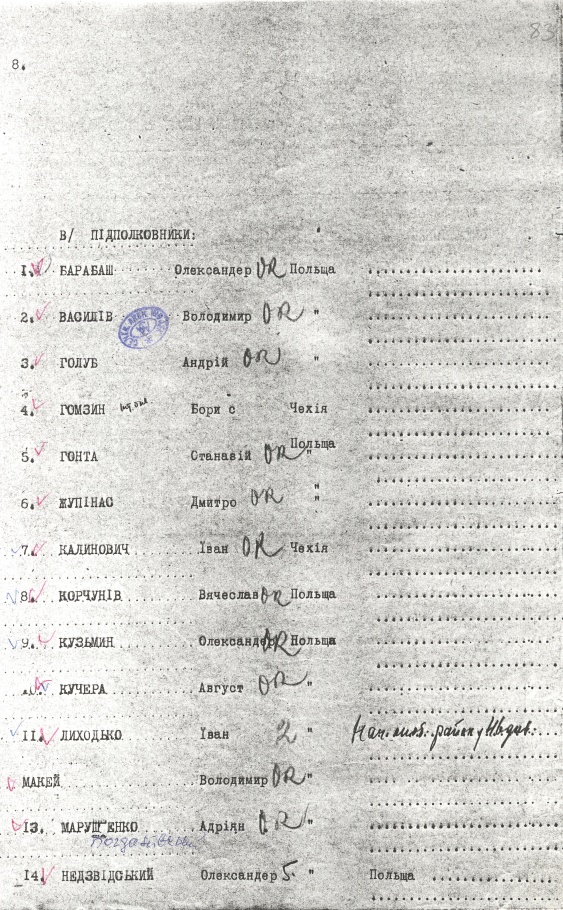 83
8.
В/ ПІДПОЛКОВНИКИ:
1. БАРАБАШ Олександер OR Польща
2. ВАСИЛІВ Володимир OR "
3. ГОЛУБ Андрій OR "
4. ГОМЗИН Бори с Чехія
5. ГОНТА Станавій OR Польща "
6. ЖУПІНАС Дмитро OR "
7. КАЛИНОВИЧ Іван OR Чехія
8. КОРЧУНІВ Вячеслав OR Польща
9. КУЗЬМИН Олександер OR Польща
10. КУЧЕРА Август OR "
11. ЛИХОДЬКО Іван 2 "
МАКЕЙ Володимир OR "
13. МАРУЩЕНКО Адріян OR "
14. НЕДЗВІДСЬКИЙ Олександер 5. " Польща